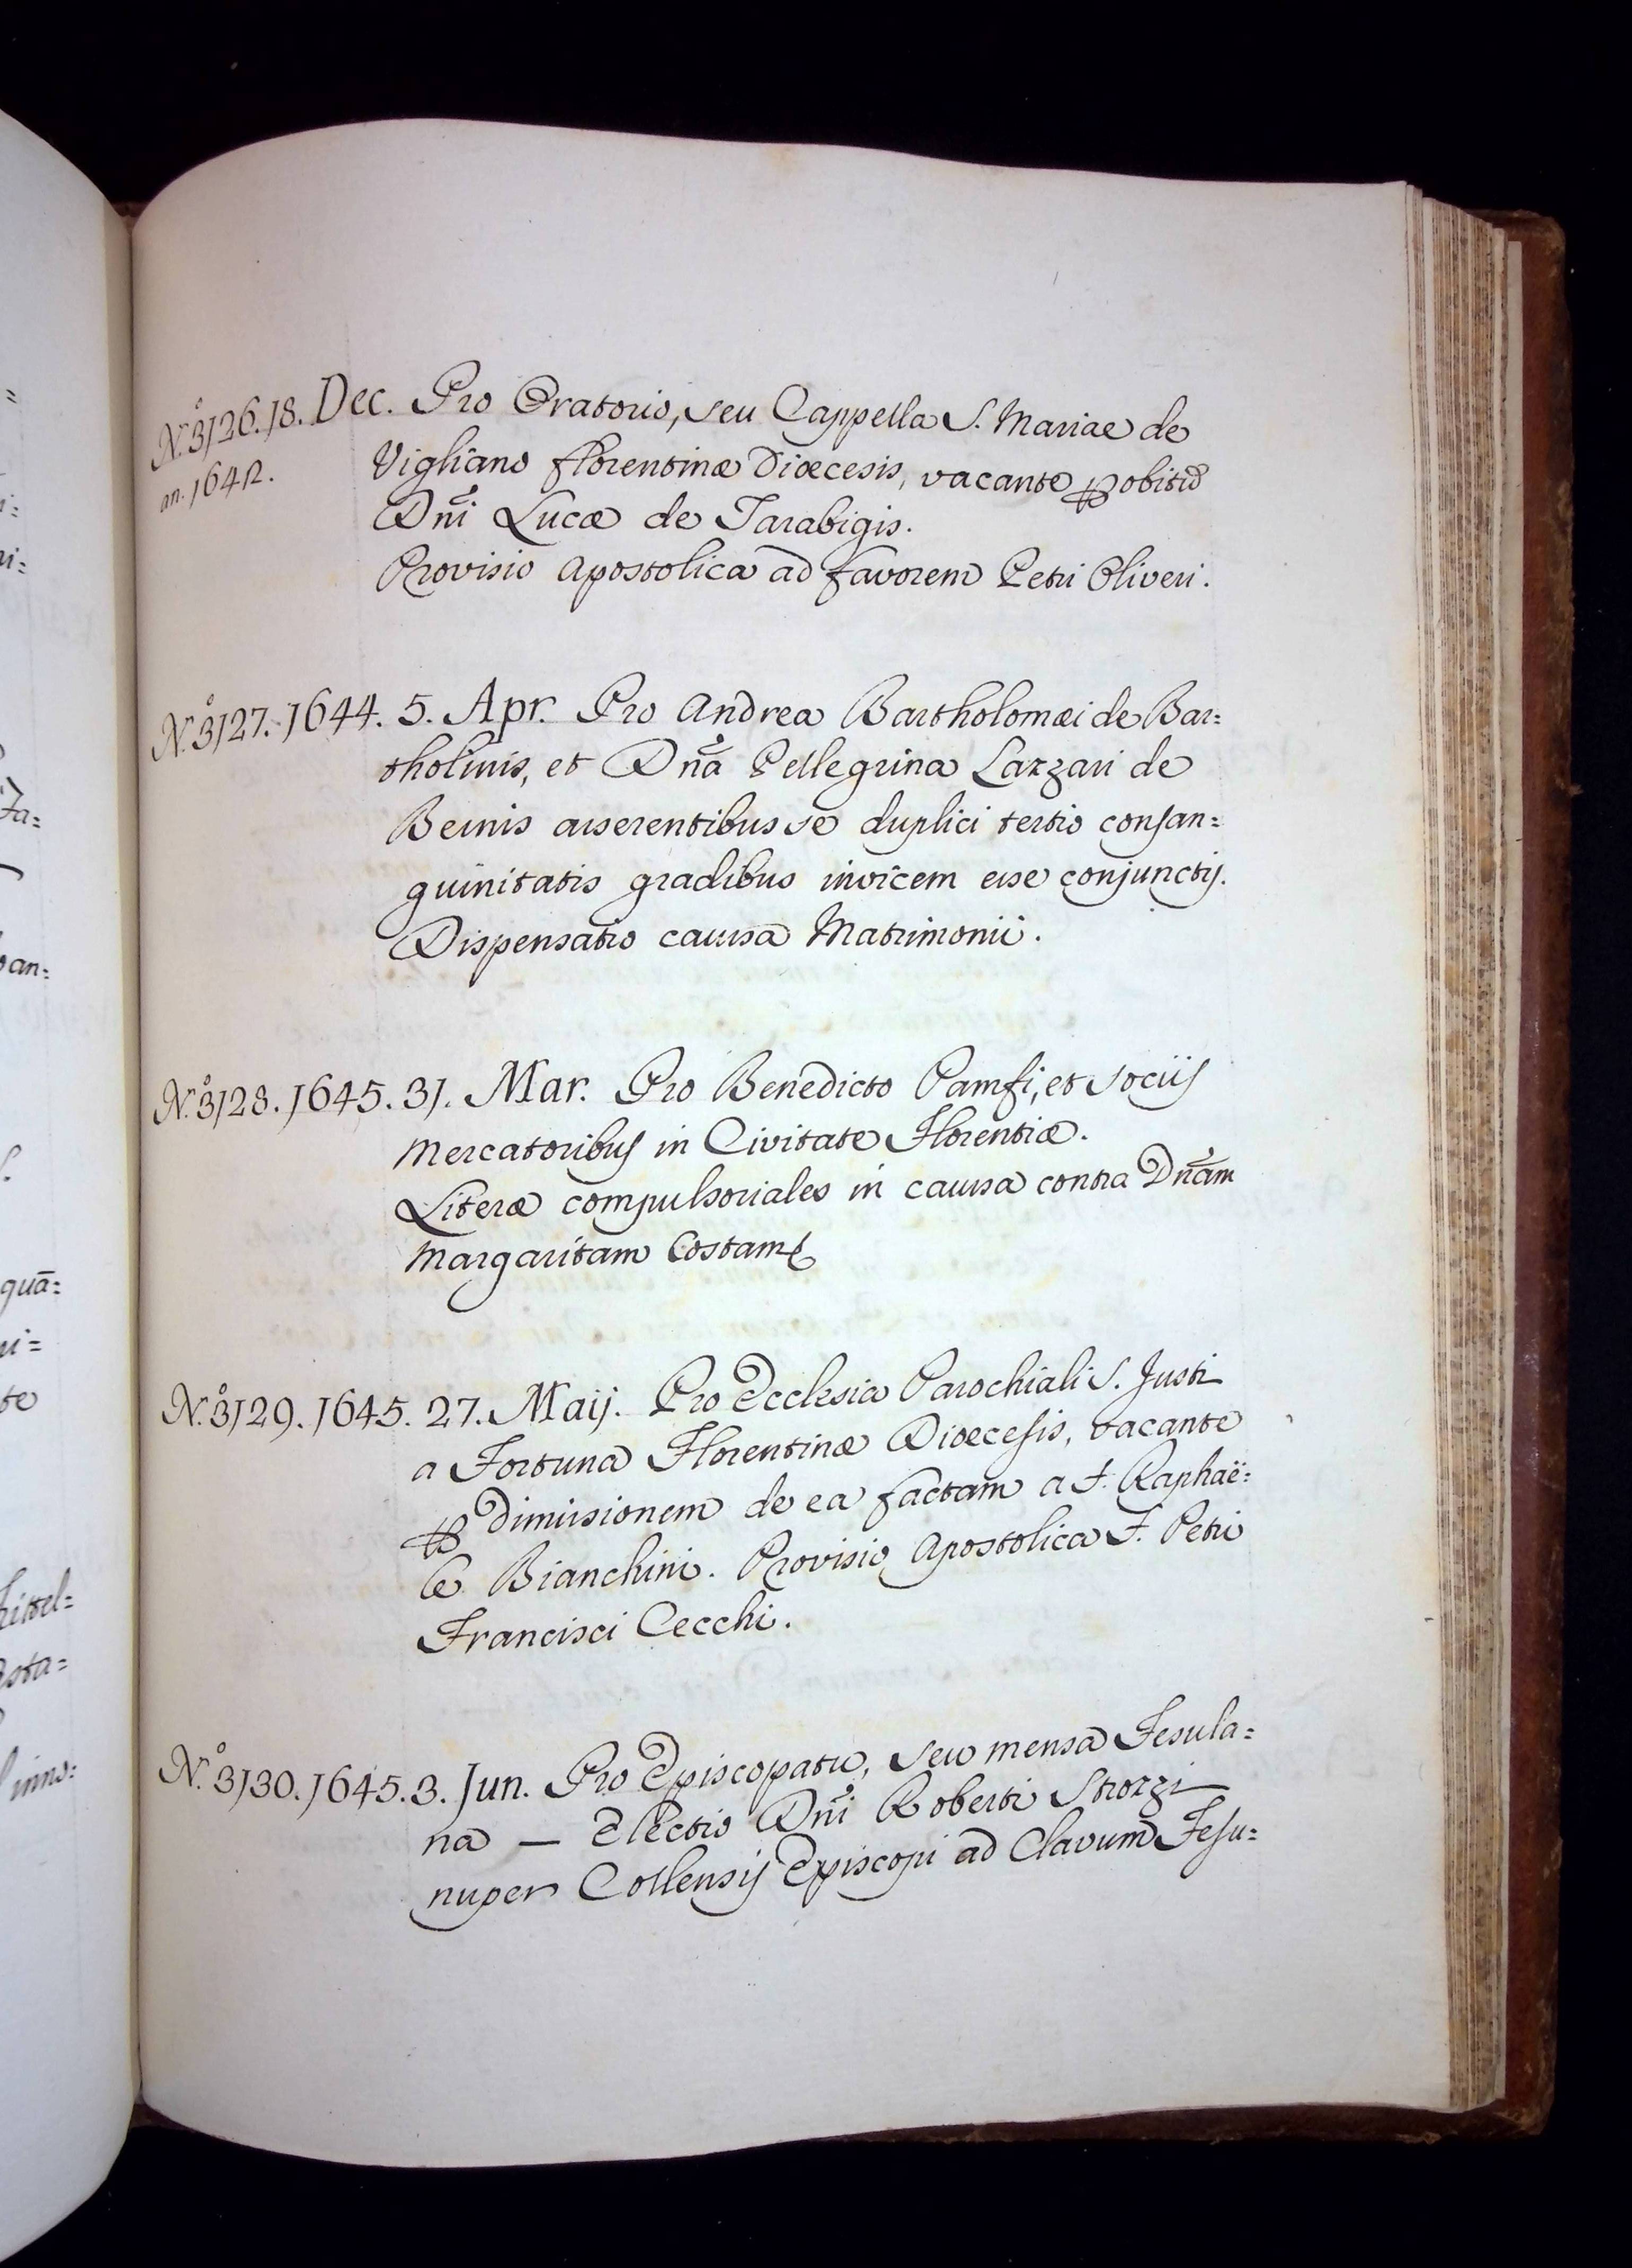 N.º 3126. 18. Dec. Pro Oratorio, seu Cappella S. Mariae de
an. 1642. Vigliano florentinæ Diœcesis, vacante ꝑ obitũ
Dñi Lucæ de Tarabigis.
Provisio Apostolica ad favorem Petri Oliveri.
N.º 3127. 1644. 5. Apr. Pro Andrea Bartholomæi de Bar=
tholinis, et Dña Pellegrina Lazzari de
Beinis asserentibus se duplici tertio consan=
guinitatis gradibus invicem esse conjunctis.
Dispensatio causa Matrimonii.
N.º 3128. 1645. 31. Mar. Pro Benedicto Pamfi, et sociis
Mercatoribus in Civitate Florentiæ.
Literæ compulsoriales in causa contra Dñam
Margaritam Costam
N.º 3129. 1645. 27. Maij. Pro Ecclesia Parochiali S. Justi
a Fortuna Florentinæ Diœcesis, vacante
ꝑ dimissionem de ea factam a F. Raphaë=
le Bianchini. Provisio Apostolica F. Petri
Francisci Cecchi.
N.º 3130. 1645. 3. Jun. Pro Episcopatu, seu mensa Fesula=
na — Electio Dñi Roberti Strozzi
nuper Collensis Episcopi ad Clavum Fesu=